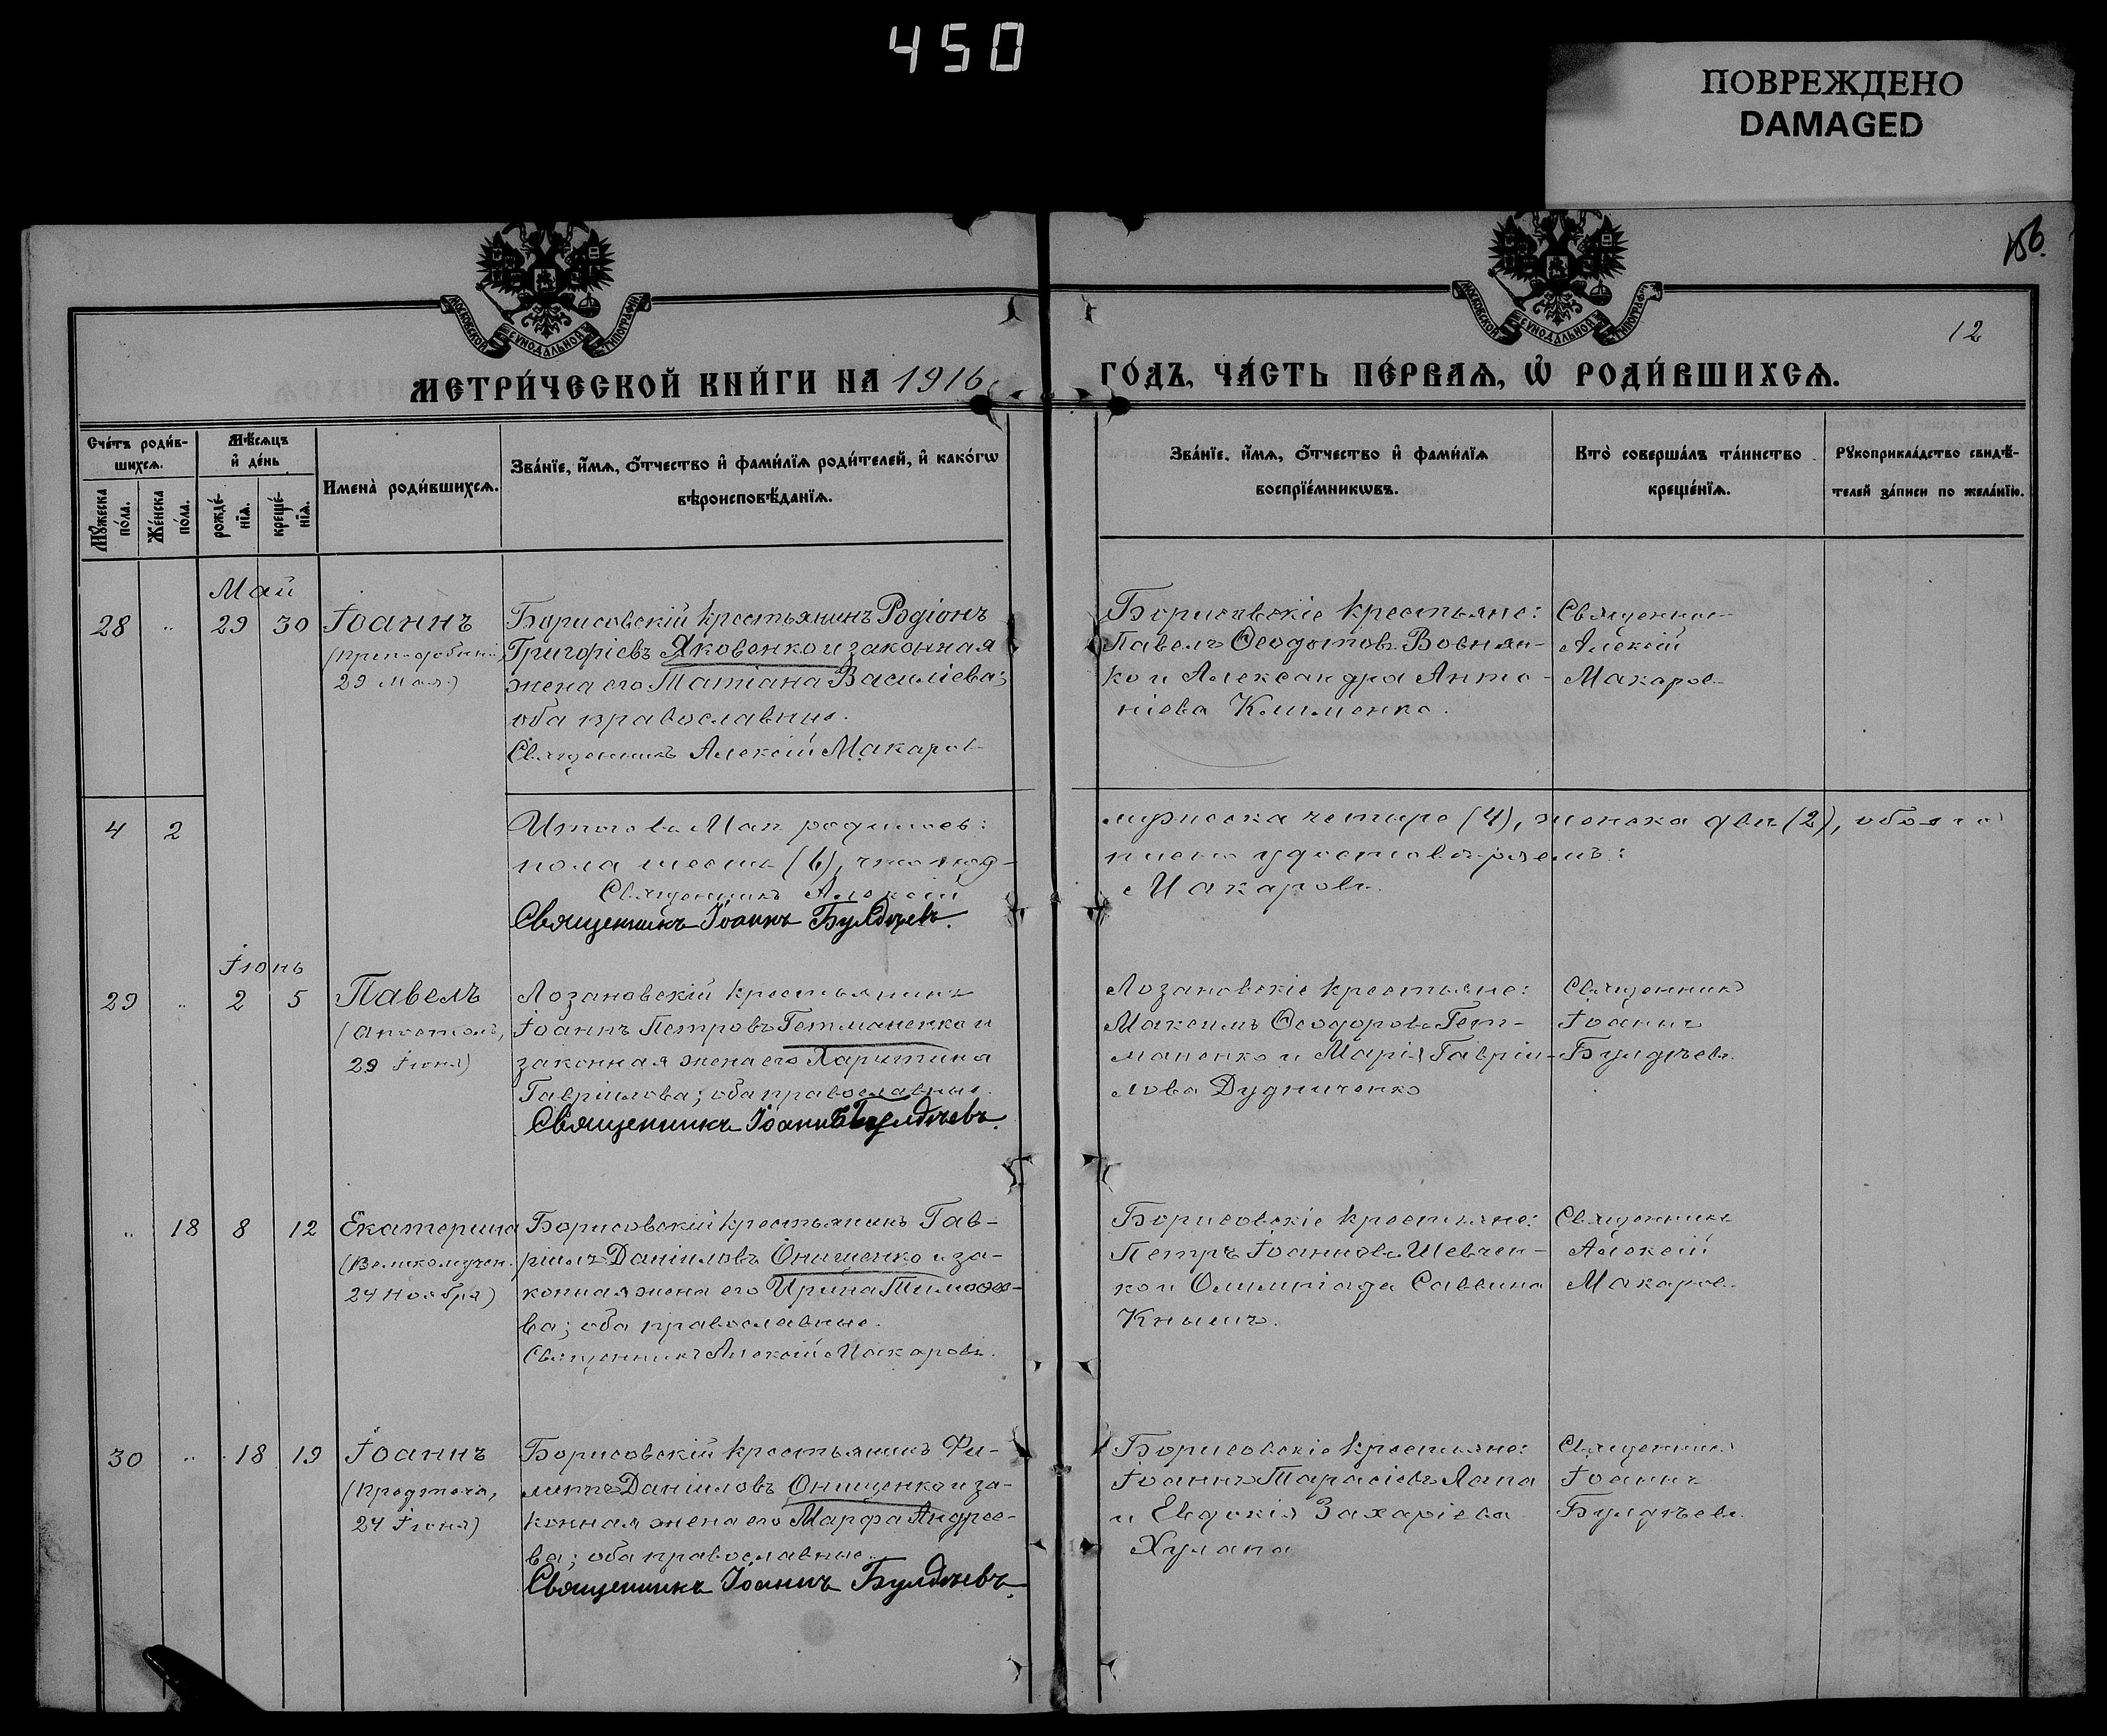 450
ПОВРЕЖДЕНО
DAMAGED
156.
12
МОСКОВСКОЙ СѴНОДАЛЬНОЙ ТИПОГРАФІИ
МОСКОВСКОЙ СѴНОДАЛЬНОЙ ТИПОГРАФІИ
МЕТРИ́ЧЕСКОЙ КНИ́ГИ НА 1916
ГО́ДЪ, ЧА́СТЬ ПЕ́РВАѦ, Ѡ РОДИ́ВШИХСѦ.
Сче́тъ роди́в-
шихсѧ.
Мꙋ́жеска по́ла.
Же́нска по́ла.
Мѣ́сѧцъ
и҆ де́нь
рожде́-
нїѧ.
креще́-
нїѧ.
И҆мена̀ роди́вшихсѧ.
Зва́нїе, и҆́мѧ, ѻ҆́тчество и҆ фами́лїѧ роди́телей, и҆ како́гѡ
вѣроисповѣ́данїѧ.
Зва́нїе, и҆́мѧ, ѻ҆́тчество и҆ фами́лїѧ
воспрїе́мникѡвъ.
Кто̀ соверша́лъ та́инство
креще́нїѧ.
Рꙋкоприкла́дство свидѣ́-
телей за́писи по жела́нїю.
Май
28 „ 29 30
Іоаннъ
29 Мая)
Борисовскій крестьянинъ Родіонъ
Григоріевъ Яковенко и законная
жена его Татіана Василіева;
оба православные.
Священникъ Алексій Макаровъ
Борисовскіе крестьяне:
Павелъ Ѳеодотовъ Вовнян-
ко и Александра Анто-
ніева Клименко.
Священникъ
Алексій
Макаровъ
4 2
Итого въ Маѣ родилось:
мужеска четыре (4), женска двѣ (2), обоего
пола шесть (6), что под-
писью удостовѣряемъ:
Священникъ Алексій
Макаровъ.
Священникъ Іоаннъ Булдѣевъ.
Іюнь
29 „ 2 5
Павелъ
(Апостолъ,
29 Іюня)
Лозановскій крестьянинъ
Іоаннъ Петровъ Гетманенко и
законная жена его Харитина
Гавріилова; оба православные.
Священникъ Іоаннъ Булдѣевъ.
Лозановскіе крестьяне:
Максимъ Ѳеодоровъ Гет-
маненко и Марія Гавріи-
лова Дудниченко
Священникъ
Іоаннъ
Булдѣевъ.
„ 18 8 12
Екатерина
(Великомучен.
24 Ноября)
Борисовскій крестьянинъ Гав-
ріилъ Даніиловъ Онищенко и за-
конная жена его Ирина Тимоѳее-
ва; оба православные.
Священникъ Алексій Макаровъ.
Борисовскіе крестьяне:
Петръ Іоанновъ Шевчен-
ко и Олимпіада Саввина
Кнышъ.
Священникъ
Алексій
Макаровъ.
30 „ 18 19
Іоаннъ
(Предтеча,
24 Іюня)
Борисовскій крестьянинъ Фи-
липпъ Даніиловъ Онищенко и за-
конная жена его Марфа Андрее-
ва; оба православные.
Священникъ Іоаннъ Булдѣевъ.
Борисовскіе крестьяне:
Іоаннъ Тарасіевъ Лапа
и Евдокія Захаріева
Хулапа
Священникъ
Іоаннъ
Булдѣевъ.